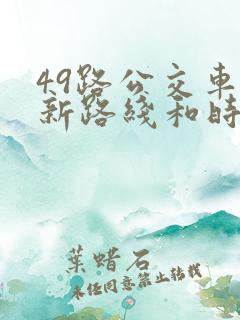 49路公交车
新路线和时
葉蜡石
未经同意禁止转载